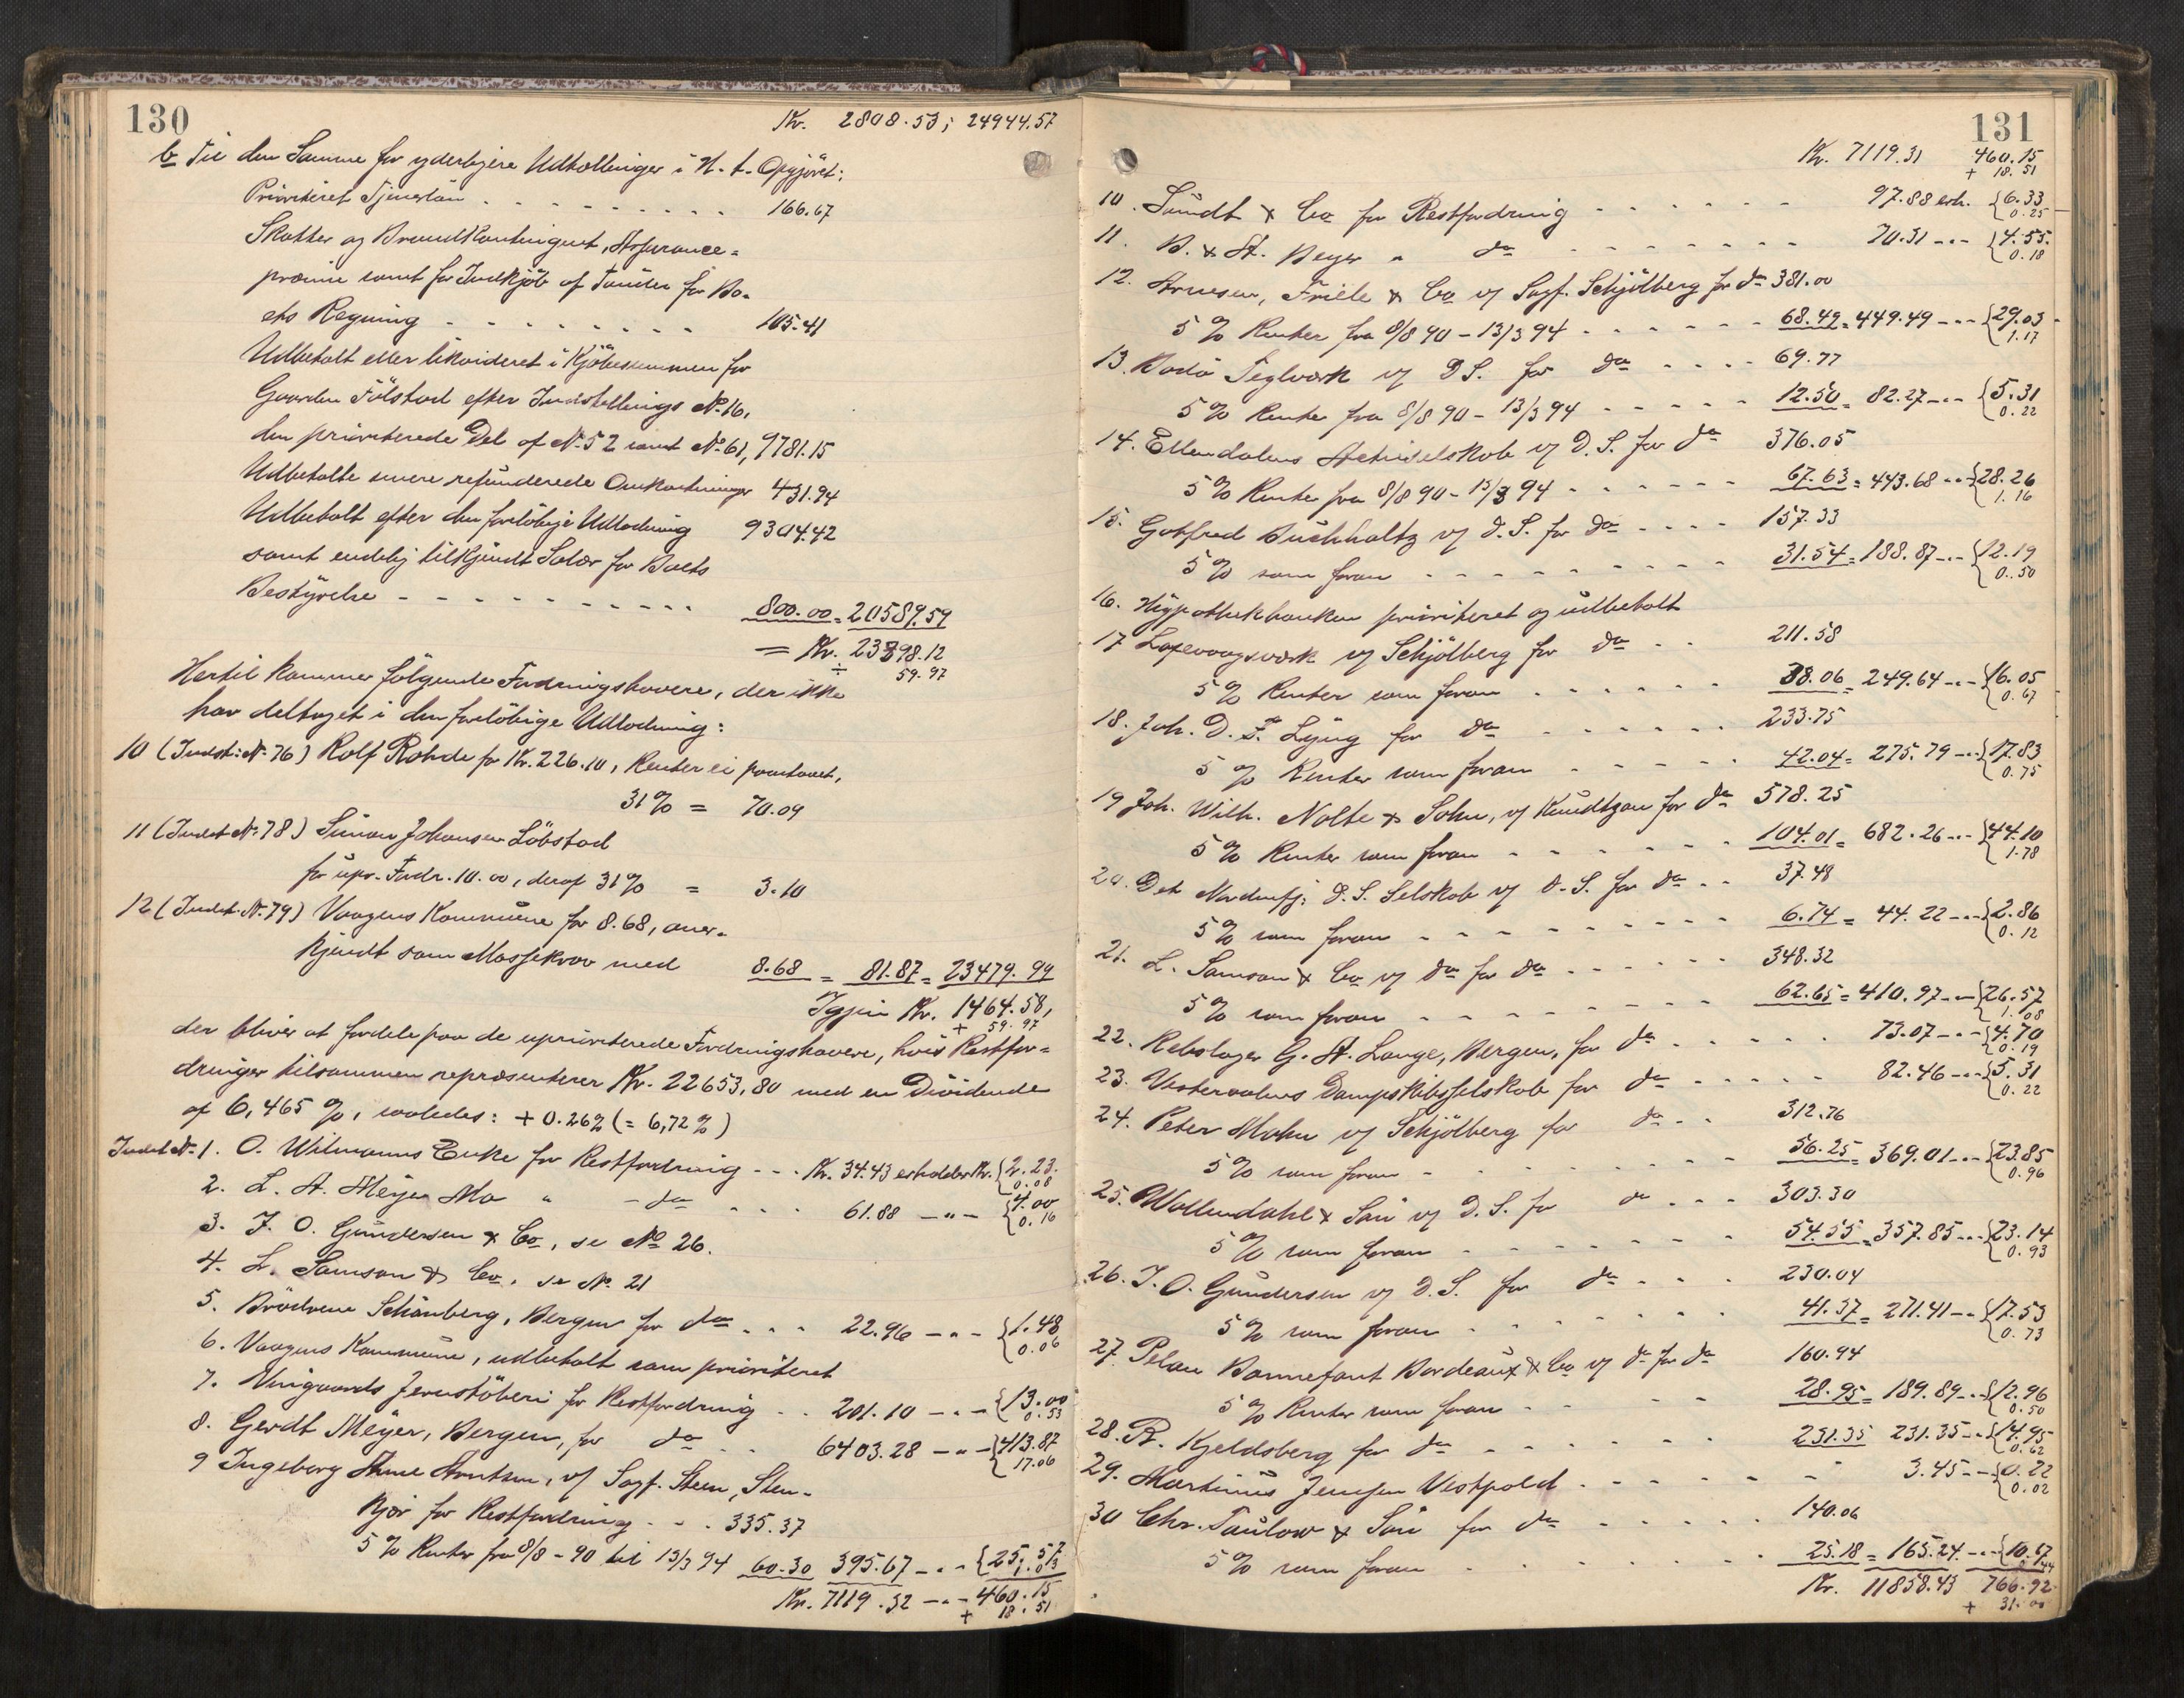 130
Kr. 2808.53; 24944.57
b Til den Samme for yderligere Udtællinger i H. t. Opgjöret:
Prioriteret Tjenerlön - - - - - - - - 166.67
Skatter og Brandkontingent, Assurance=
præmie samt for Indkjöb af Tønder for Bo-
ets Regning - - - - - - - - 105.41
Udbetalt eller likvideret i Kjöbesummen for
Gaarden Fölstad efter Indstillings No 16,
den prioriterede Del af No 52 samt No 61, 9781.15
Udbetalte senere refunderede Omkostninger 431.94
Udbetalt efter den forelöbige Udlodning 9304.42
samt endelig tilkjendt Salær for Boets
Bestyrelse - - - - - - - - - - 800.00 = 20589.59
= Kr. 23398.12
÷ 59.97
Hertil kommer fölgende Fordringshavere, der ikke
har deltaget i den forelöbige Udlodning:
10 (Indst: No 76) Rolf Rohde for Kr. 226.10, Renter ei paastaaet,
31% = 70.09
11 (Indst No 78) Simon Johansen Löbstad
for upr. Fordr. 10.00, deraf 31% = 3.10
12 (Indst. No 79) Vaagens Kommune for 8.68, aner-
kjendt som Massekrav med 8.68 = 81.87 = 23479.99
Igjen Kr. 1464.58,
+ 59.97
der bliver at fordele paa de uprioriterede Fordringshavere, hvis Restfor=
dringer tilsammen repræsenterer Kr. 22653,80 med en Dividende
af 6,465 %, saaledes: + 0.26% (= 6,72%)
Indst No 1. O. Wilmanns Enke for Restfordring - - - Kr. 34.43 erholder Kr. {2.23.
0.08
2. L. A. Meyer Mo " - do - . . . 61.88 - " - {4.00
0.16
3. J. O. Gundersen & Co, se No 26.
4. L. Samson & Co, se No 21
5. Brödrene Schönberg, Bergen for do . . . 22.96 - " - {1.48
0.06
6. Vaagens Kommune, udbetalt som prioriteret
7. Vingaards Jernstöberi for Restfordring . . 201.10 - " - {13.00
0.53
8. Gerdt Meyer, Bergen, for do . . 6403.28 - " - {413.87
17.06
9 Ingeborg Anne Arntsen, v/ Sagf. Steen, Sten-
kjær for Restfordring - - . 335.37
5 % Renter fra 8/8 - 90 til 13/3 94 60.30 395.67 - " - {25.57
1.03
Kr. 7119.32 - " - 460.15
+ 18.51
131
Kr. 7119.31 460.15
+ 18.51
10. Sundt & Co for Restfordring - - - - - - 97.88 erh. {6.33
0.25
11. B. & A. Beyer " do - - - - - - - - 70.31 - " - {4.55.
0.18
12. Arnesen, Friele & Co v/ Sagf. Schjölberg for do 381.00
5 % Renter fra 8/8 90 - 13/3 94 - - - - - - 68.49 = 449.49 - " - {29.03
1.17
13. Bodö Teglværk v/ D S. for do - - - - 69.77
5 % Rente fra 8/8 90 - 13/3 94 - - - - - 12.50 = 82.27 - " - {5.31
0.22
14. Ellendalens Aktieselskab v/ D. S. for do 376.05
5 % Rente fra 8/8 90 - 13/3 94 - - - - - - 67.63 = 443.68 - " - {28.26
1.16
15. Gotfred Buchholtz v/ D. S. for do - - - - 157.33
5 % som foran - - - - - - - - - - 31.54 = 188.87 - " - {12.19
0.50
16. Hypothekbanken prioriteret og udbetalt
17 Laxevaagsværk v/ Schjölberg for do - - 211.58
5 % Renter som foran - - - - - - 38.06 = 249.64 - " - {16.05
0.67
18. Joh. D. F. Lyng for do - - - - - - - 233.75
5 % Renter som foran - - - - - 42.04 = 275.79 - " - {17.83
0.75
19 Joh. Wilh. Nolte & Sohn, v/ Knudtzon for do 578.25
5 % Renter som foran - - - - - - - 104.01 = 682.26 - " - {44.10
1.78
20. Det Nordenfj: D. S. Selskab v/ D. S. for do - - 37.48
5 % som foran - - - - - - - - - 6.74 = 44.22 - " - {2.86
0.12
21. L. Samson & Co v/ do for do - - - - - - 348.32
5 % som foran - - - - - - - - - 62.65 = 410.97 - " - {26.57
1.08
22. Rebslager G. A. Lange, Bergen, for do - - - - - - 73.07 - " - {4.70
0.19
23. Vesteraalens Dampskibsselskab for do - - - - - 82.46 - " - {5.31
0.22
24. Peter Mohn v/ Schjölberg for do - - 312.76
5 % som foran - - - - - - - - - 56.25 = 369.01 - " - {23.85
0.96
25. Wollendahl & Sön v/ D. S. for do - - - 303.30
5 % som foran - - - - - - - - 54.55 = 357.85 - " - {23.14
0.93
26. J. O. Gundersen v/ D. S. for do - - - 230.04
5 % som foran - - - - - - - 41.37 = 271.41 - " - {17.53
0.73
27. Pelan Bonnefant Bordeaux & Co v/ do for do 160.94
5 % Renter som foran - - - - 28.95 = 189.89 - " - {12.96
0.50
28. R. Kjeldsberg for do - - - - - - 231.35 231.35 - " - {14.95
0.62
29. Martinus Jensen Vestpold - - - - - - - 3.45 - " - {0.22
0.02
30 Chr. Taulow & Sön for do - - - - - - 140.06
5 % som foran - - - - - - 25.18 = 165.24 - " - {10.67
0.44
Kr. 11858.43 766.92
+ 31.00